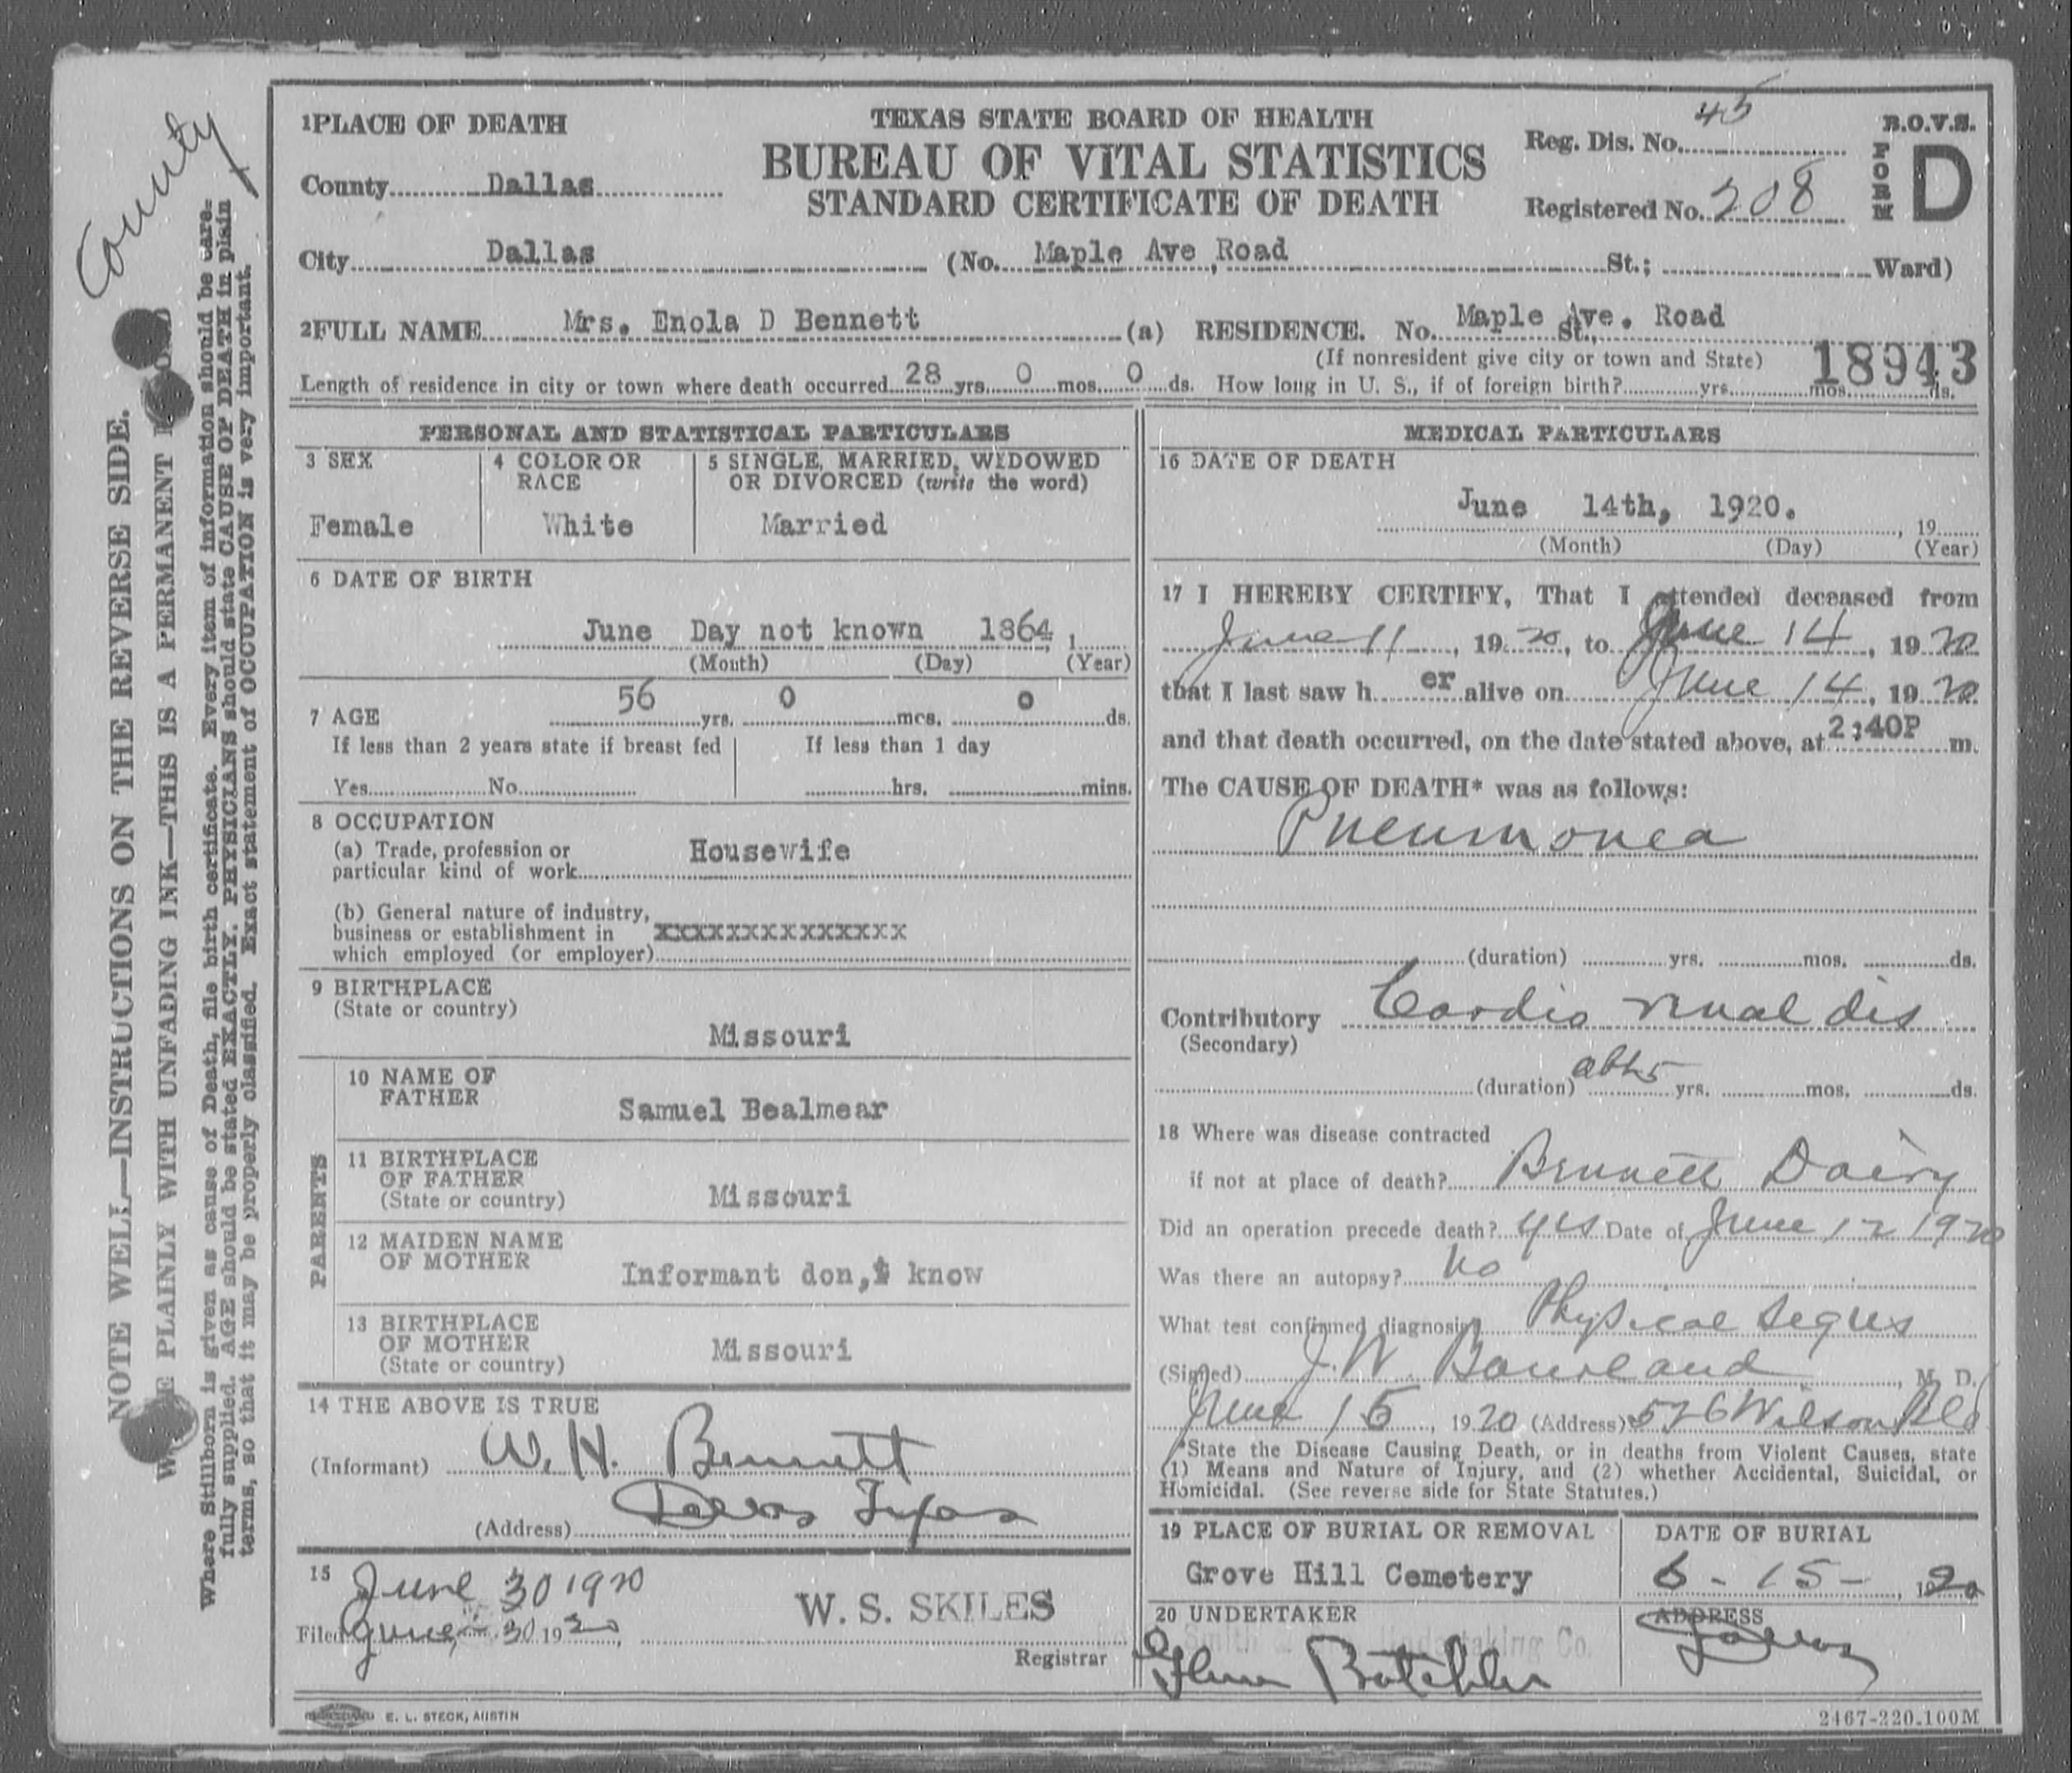 County
NOTE WELL—INSTRUCTIONS ON THE REVERSE SIDE.
PLAINLY WITH UNFADING INK—THIS IS A PERMANENT
Where Stillborn is given as cause of Death, file birth certificate. Every item of information should be care-
fully supplied. AGE should be stated EXACTLY. PHYSICIANS should state CAUSE OF DEATH in plain
terms, so that it may be properly classified. Exact statement of OCCUPATION is very important.
1PLACE OF DEATH
TEXAS STATE BOARD OF HEALTH
BUREAU OF VITAL STATISTICS
STANDARD CERTIFICATE OF DEATH
Reg. Dis. No. 45
Registered No. 208
B.O.V.S.
FORM D
County Dallas
City Dallas (No. Maple Ave Road St.; Ward)
2FULL NAME Mrs. Enola D Bennett (a) RESIDENCE. No. Maple Ave. Road St.,
(If nonresident give city or town and State) 18943
Length of residence in city or town where death occurred 28 yrs. 0 mos. 0 ds. How long in U. S., if of foreign birth? yrs. mos. ds.
PERSONAL AND STATISTICAL PARTICULARS
3 SEX
Female
4 COLOR OR RACE
White
5 SINGLE, MARRIED, WIDOWED
OR DIVORCED (write the word)
Married
6 DATE OF BIRTH
June Day not known 1864, 1
(Month) (Day) (Year)
7 AGE 56 yrs. 0 mos. 0 ds.
If less than 2 years state if breast fed
Yes No
If less than 1 day
hrs. mins.
8 OCCUPATION
(a) Trade, profession or
particular kind of work Housewife
(b) General nature of industry,
business or establishment in xxxxxxxxxxxxxx
which employed (or employer)
9 BIRTHPLACE
(State or country)
Missouri
PARENTS
10 NAME OF
FATHER
Samuel Bealmear
11 BIRTHPLACE
OF FATHER
(State or country) Missouri
12 MAIDEN NAME
OF MOTHER
Informant don,t know
13 BIRTHPLACE
OF MOTHER
(State or country) Missouri
14 THE ABOVE IS TRUE
(Informant) W. H. Bennett
(Address) Dallas Texas
15 June 30 1920
Filed June 30 1920, W. S. SKILES
Registrar
MEDICAL PARTICULARS
16 DATE OF DEATH
June 14th, 1920. , 19
(Month) (Day) (Year)
17 I HEREBY CERTIFY, That I attended deceased from
June 11, 1920, to June 14, 1920
that I last saw her alive on June 14, 1920
and that death occurred, on the date stated above, at 2:40P m.
The CAUSE OF DEATH* was as follows:
Pneumonea
(duration) yrs. mos. ds.
Contributory Cardio renal dis
(Secondary)
(duration) abt 5 yrs. mos. ds.
18 Where was disease contracted
if not at place of death? Bennett Dairy
Did an operation precede death? yes Date of June 12 1920
Was there an autopsy? No
What test confirmed diagnosis Physical Signs
(Signed) J. W. Bourland, M. D.
June 15, 1920 (Address) 526 Wilson Bld
*State the Disease Causing Death, or in deaths from Violent Causes, state
(1) Means and Nature of Injury, and (2) whether Accidental, Suicidal, or
Homicidal. (See reverse side for State Statutes.)
19 PLACE OF BURIAL OR REMOVAL
Grove Hill Cemetery
DATE OF BURIAL
6-15-, 1920
20 UNDERTAKER
Smith Undertaking Co.
ADDRESS
Dallas
E. L. STECK, AUSTIN
2467-220.100M